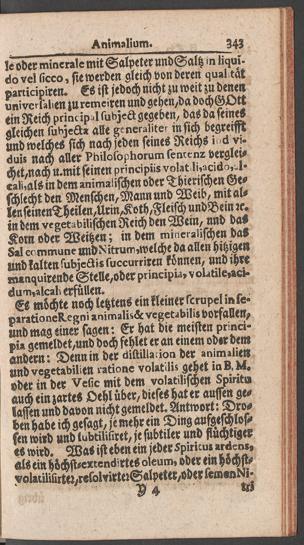 Animalium. 343
le oder minerale mit Salpeter und Saltz in liqui-
do vel sicco, sie werden gleich von deren qualität
participiren. Es ist jedoch nicht zu weit zu denen
universalien zu remeiren und gehen, da doch GOtt
ein Reich principal subject gegeben, das da seines
gleichen subjecta alle generaliter in sich begreifft
und welches sich nach jeden seines Reichs indivi-
duis nach aller Philosophorum sentenz verglei-
chet, nach u. mit seinen principiis volatili, acido,
cali, als in dem animalischen oder Thierischen Ge-
schlecht den Menschen, Mann und Weib, mit al-
len seinen Theilen, Urin, Koth, Fleisch und Bein ꝛc.
in dem vegetabilischen Reich den Wein, und das
Korn oder Weitzen; in dem mineralischen das
Sal commune und Nitrum, welche da allen hitzigen
und kalten subjectis succurriren können, und ihre
manquirende Stelle, oder principia, volatile, aci-
dum, alcali erfüllen.
Es möchte noch letztens ein kleiner scrupel in se-
paratione Regni animalis & vegetabilis vorfallen,
und mag einer sagen: Er hat die meisten princi-
pia gemeldet, und doch fehlet er an einem oder dem
andern: Denn in der distillation der animalien
und vegetabilien ratione volatilis gehet in B. M.
oder in der Vesic mit dem volatilischen Spiritu
auch ein zartes Oehl über, dieses hat er aussen ge-
lassen und davon nicht gemeldet. Antwort: Dro-
ben habe ich gesagt, je mehr ein Ding aufgeschlos-
sen wird und subtilisiret, je subtiler und flüchtiger
es wird. Was ist eben ein jeder Spiritus ardens,
als ein höchst extendirtes oleum, oder ein höchst-
volatilisirter, resolvirter Salpeter, oder semen Ni-
Y 4 tri